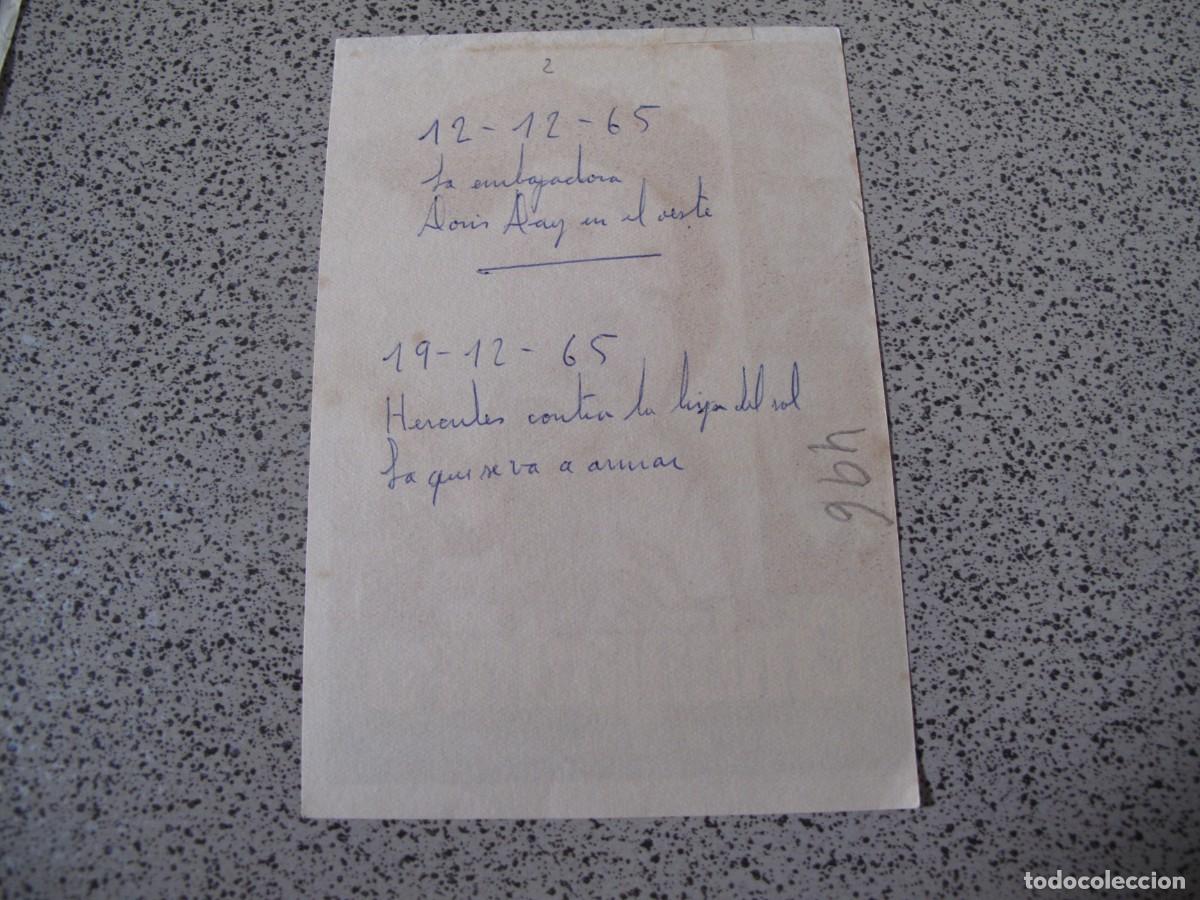 2
12-12-65
La embajadora
Doris Day en el oeste
19-12-65
Hercules contra la hija del sol
La que se va a armar
496
todocoleccion